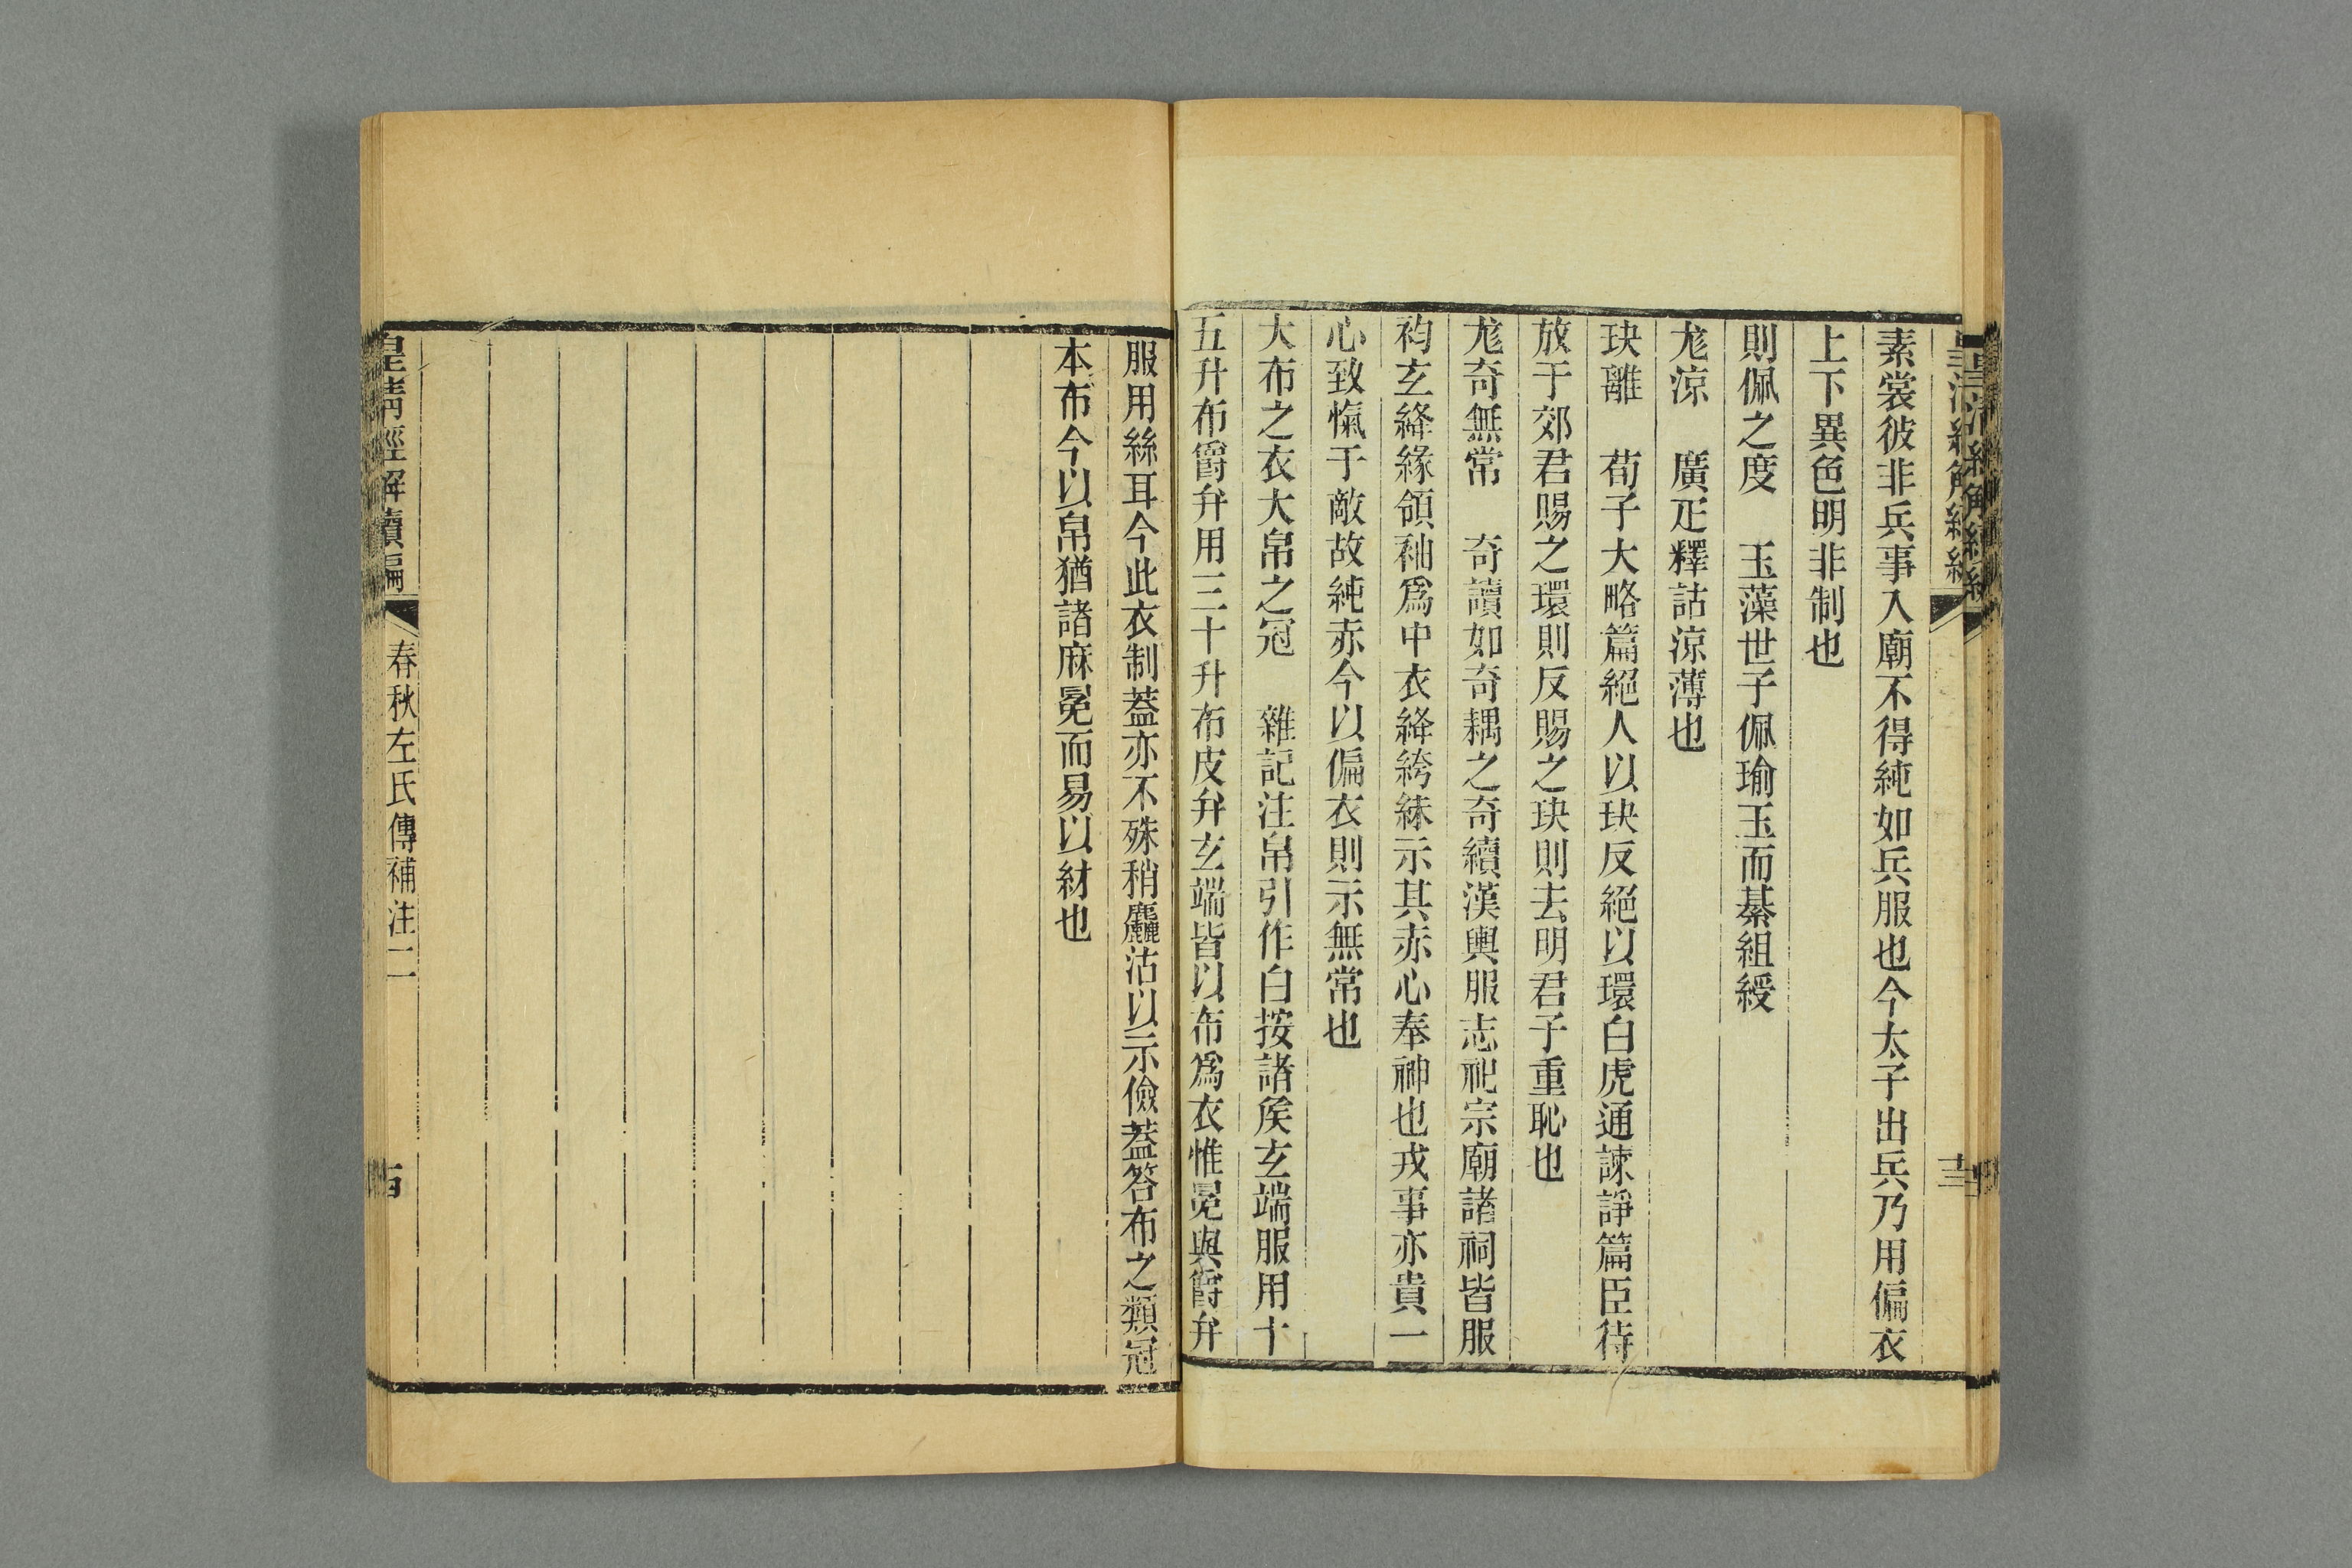 素裳彼非兵事入廟不得純如兵服也今太子出兵乃用偏衣
上下異色明非制也
則佩之度　玉藻世子佩瑜玉而綦組綬
尨涼　廣疋釋詁涼薄也
玦離　荀子大略篇絕人以玦反絕以環白虎通諫諍篇臣待
放于郊君賜之環則反賜之玦則去明君子重恥也
尨奇無常　奇讀如奇耦之奇續漢輿服志祀宗廟諸祠皆服
袀玄絳緣領袖爲中衣絳絝絑示其赤心奉神也戎事亦貴一
心致愾于敵故純赤今以偏衣則示無常也
大布之衣大帛之冠　雜記注帛引作白按諸矦玄端服用十
五升布爵弁用三十升布皮弁玄端皆以布爲衣惟冕與爵弁
服用絲耳今此衣制蓋亦不殊稍麤沽以示儉蓋答布之類冠
本布今以帛猶諸麻冕而易以紂也
皇清經解續編
春秋左氏傳補注二